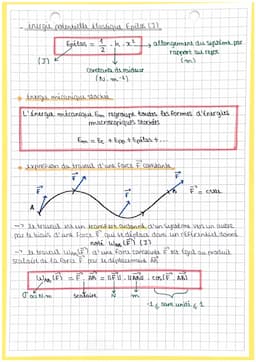 - énergie potentielle élastique Epélas (J)
Epélas = 1/2 · k · x²
→ allongement du système par rapport au repos
(J)
(m)
constante de raideur
(N. m⁻¹)
énergie mécanique stockée
L'énergie mécanique Em regroupe toutes les formes d'énergies
macroscopiques stockées
Em = Ec + Epp + Epélas + ...
expression du travail d'une force F constante
F F F F
A
F = cste
→ le travail est un transfert d'un système vers un autre
par le biais d'une force F qui se déplace dans un référentiel donné
noté W_AB (F) (J)
→ le travail W_AB (F) d'une force constante F est égal au produit
scalaire de la force F par le déplacement AB
W_AB (F) = F . AB = ||F|| . ||AB|| . cos(F, AB)
J ou N.m
scalaire
N
m
-1 ≤ sans unité ≤ 1